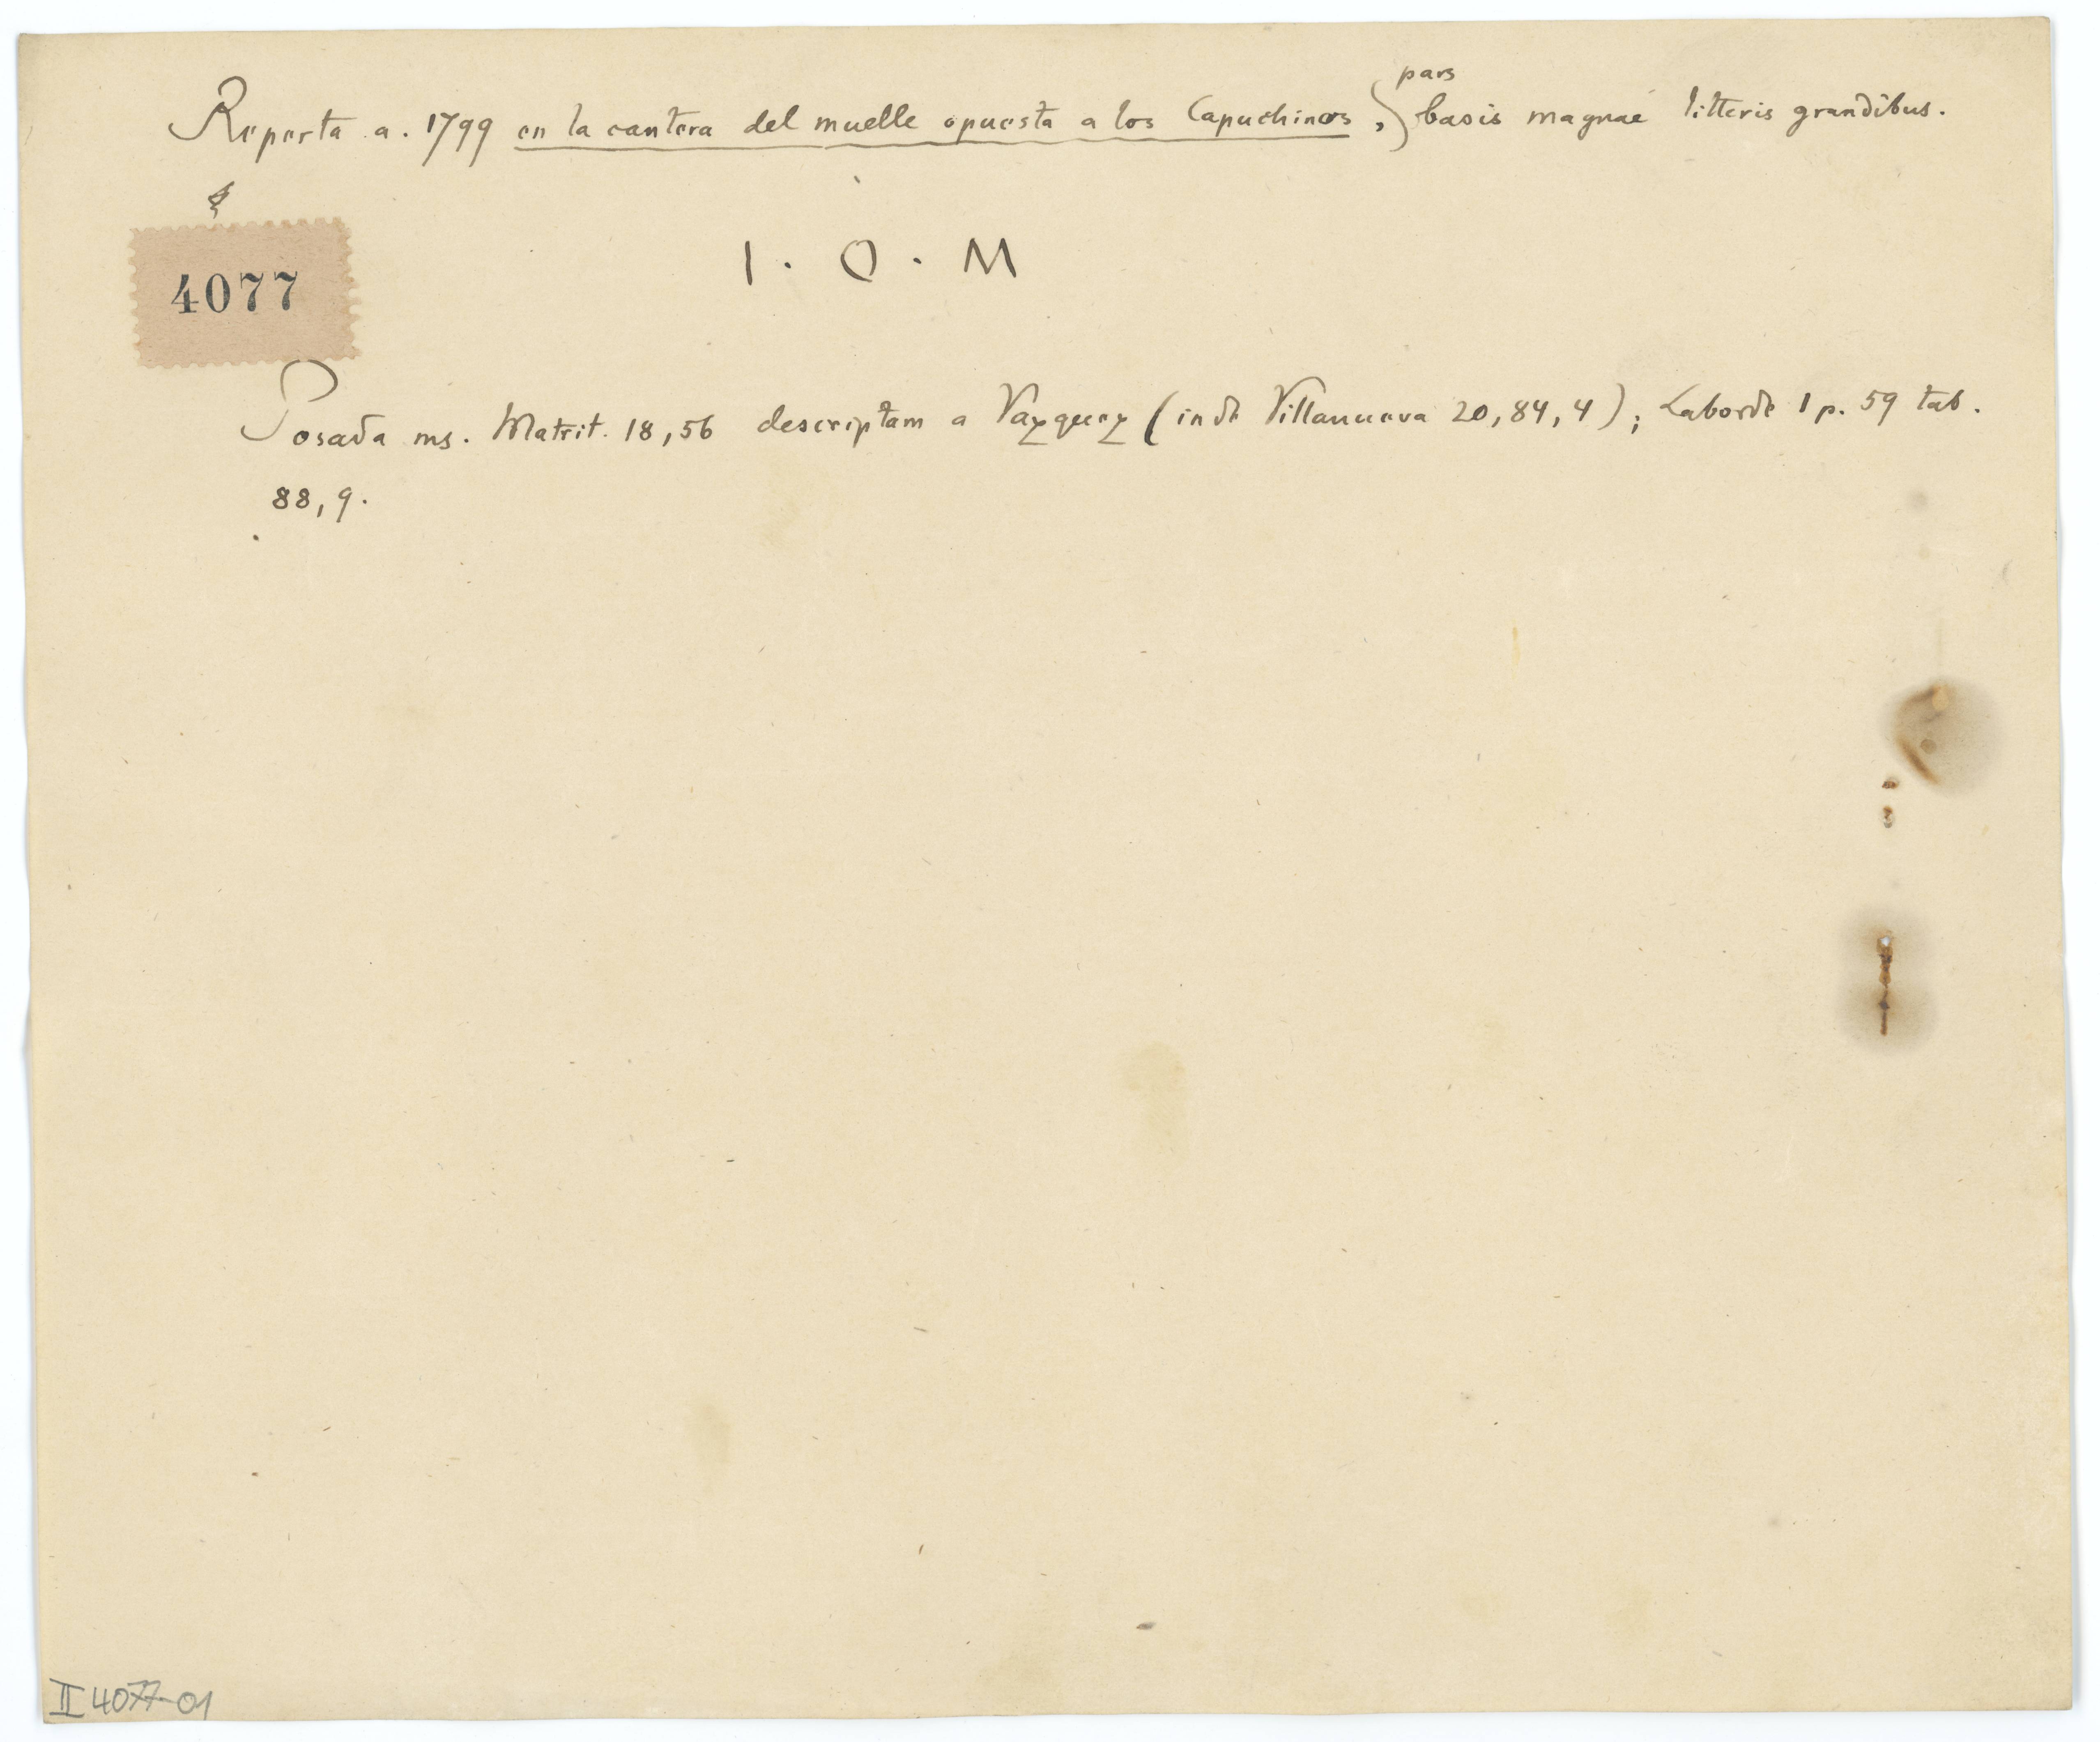 Reperta a. 1799 en la cantera del muelle opuesta a los Capuchinos, pars basis magnae litteris grandibus.
4077
I · O · M
Posada ms. Matrit. 18,56 descriptam a Vazquez (inde Villanueva 20,84,4); Laborde 1 p. 59 tab.
88,9.
II 4077-01